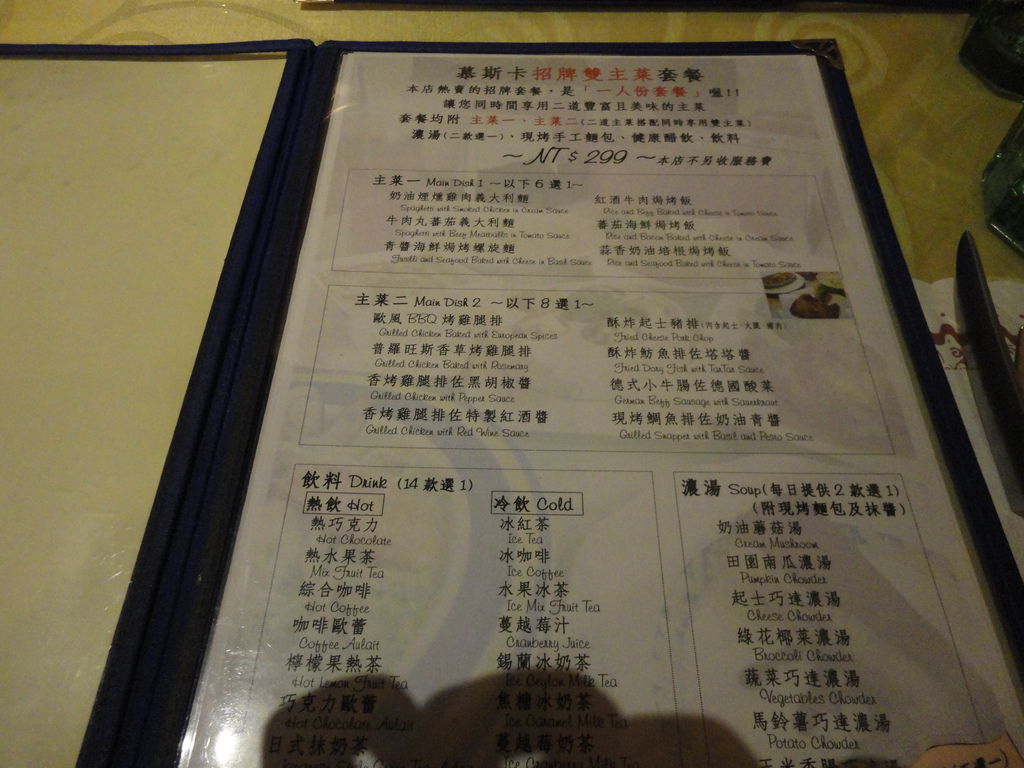 慕斯卡招牌雙主菜套餐
本店熱賣的招牌套餐,是「一人份套餐」喔!!
讓您同時間享用二道豐富且美味的主菜
套餐均附 主菜一、主菜二(二道主菜搭配同時享用雙主菜)
濃湯(二款選一)、現烤手工麵包、健康醋飲、飲料
~ NT$ 299 ~本店不另收服務費
主菜一 Main Dish 1 ~以下6選1~
奶油煙燻雞肉義大利麵
Spaghetti with Smoked Chicken in Cream Sauce
牛肉丸蕃茄義大利麵
Spaghetti with Beef Meatballs in Tomato Sauce
青醬海鮮焗烤螺旋麵
Fusilli and Seafood Baked with Cheese in Basil Sauce
紅酒牛肉焗烤飯
Rice and Beff Baked with Cheese in Tomato Sauce
蕃茄海鮮焗烤飯
Rice and Bacon Baked with Cheese in Cream Sauce
蒜香奶油培根焗烤飯
Rice and Seafood Baked with Cheese in Tomato Sauce
主菜二 Main Dish 2 ~以下8選1~
歐風BBQ烤雞腿排
Grilled Chicken Baked with European Spices
普羅旺斯香草烤雞腿排
Grilled Chicken Baked with Rosemary
香烤雞腿排佐黑胡椒醬
Grilled Chicken with Pepper Sauce
香烤雞腿排佐特製紅酒醬
Grilled Chicken with Red Wine Sauce
酥炸起士豬排(內含起士、火腿、豬肉)
Fried Cheese Pork Chop
酥炸魴魚排佐塔塔醬
Fried Dory Fish with TarTar Sauce
德式小牛腸佐德國酸菜
German Beff Sausage with Sauerkraut
現烤鯛魚排佐奶油青醬
Grilled Snapper with Basil and Pesto Sauce
飲料 Drink (14款選1)
熱飲 Hot
熱巧克力
Hot Chocolate
熱水果茶
Mix Fruit Tea
綜合咖啡
Hot Coffee
咖啡歐蕾
Coffee Aulait
檸檬果熱茶
Hot Lemon Fruit Tea
巧克力歐蕾
Hot Chocolate Aulait
日式抹奶茶
冷飲 Cold
冰紅茶
Ice Tea
冰咖啡
Ice Coffee
水果冰茶
Ice Mix Fruit Tea
蔓越莓汁
Cranberry Juice
錫蘭冰奶茶
Ice Ceylon Milk Tea
焦糖冰奶茶
Ice Caramel Milk Tea
蔓越莓奶茶
Ice Cranberry Milk Tea
濃湯 Soup(每日提供2款選1)
(附現烤麵包及抹醬)
奶油蘑菇湯
Cream Mushroom
田園南瓜濃湯
Pumpkin Chowder
起士巧達濃湯
Cheese Chowder
綠花椰菜濃湯
Broccoli Chowder
蔬菜巧達濃湯
Vegetables Chowder
馬鈴薯巧達濃湯
Potato Chowder